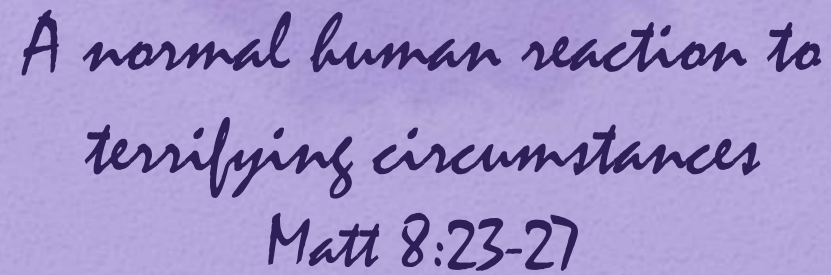 A normal human reaction to
terrifying circumstances
Matt 8:23-27